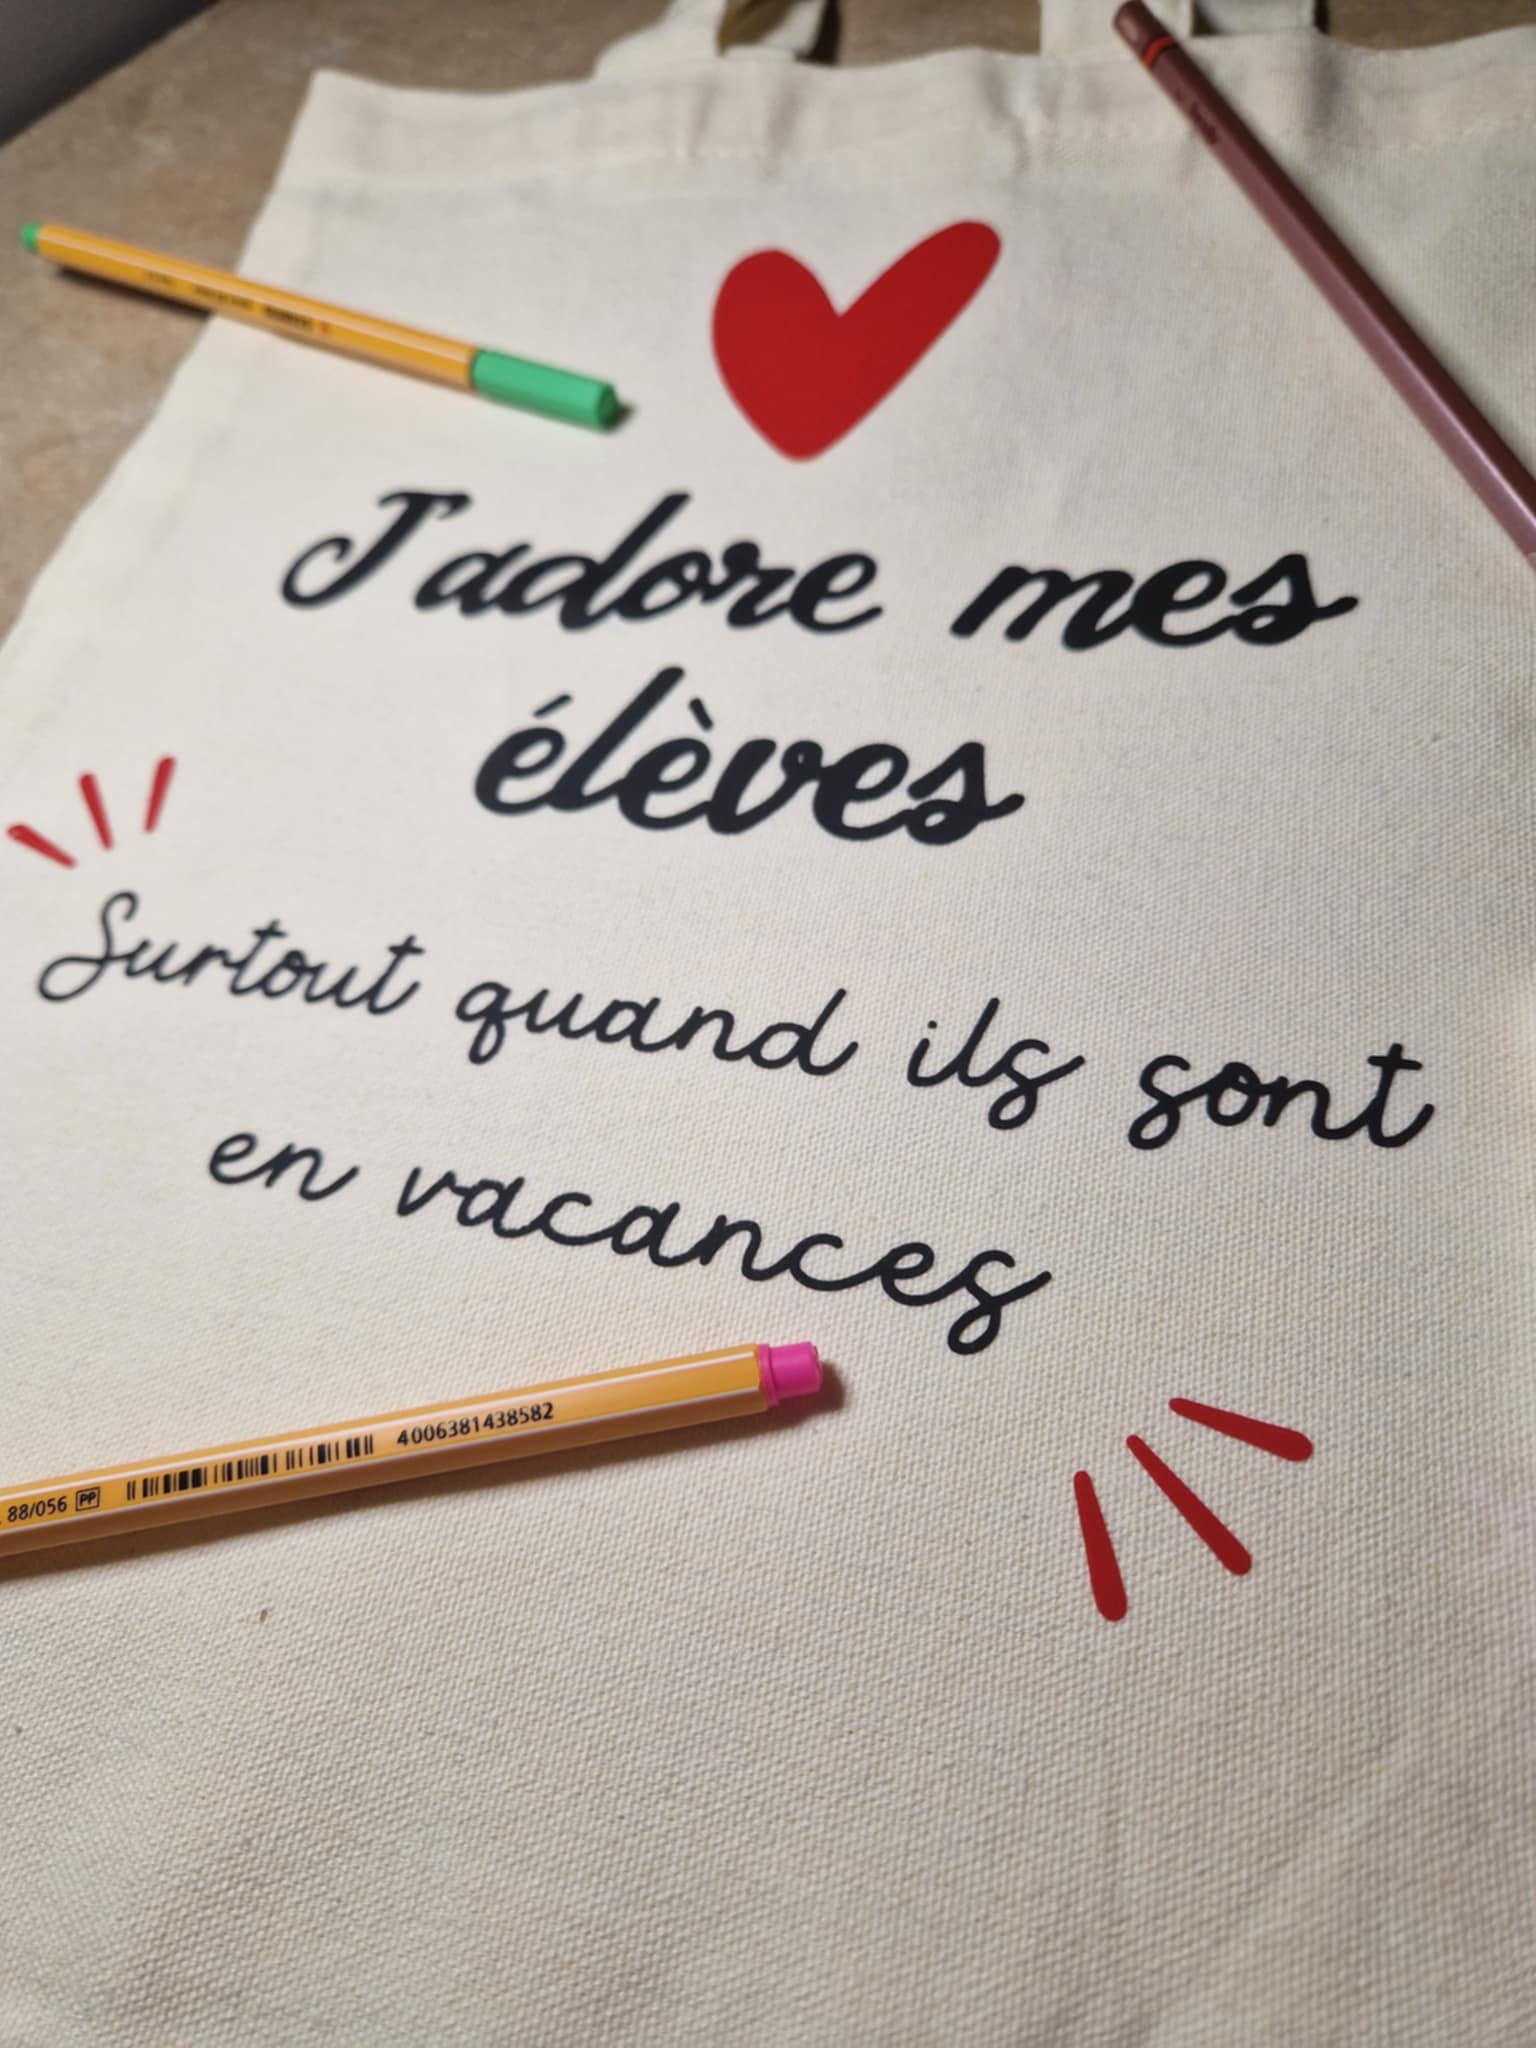 J'adore mes
élèves
Surtout quand ils sont
en vacances
88/056 PP 4006381438582